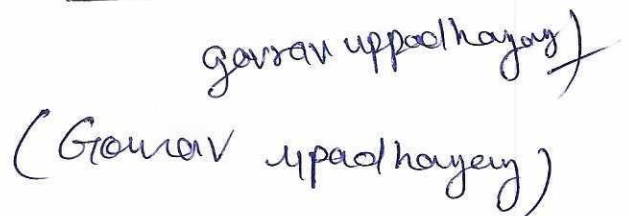 gourav uppadhayay
(Gourav upadhayay)